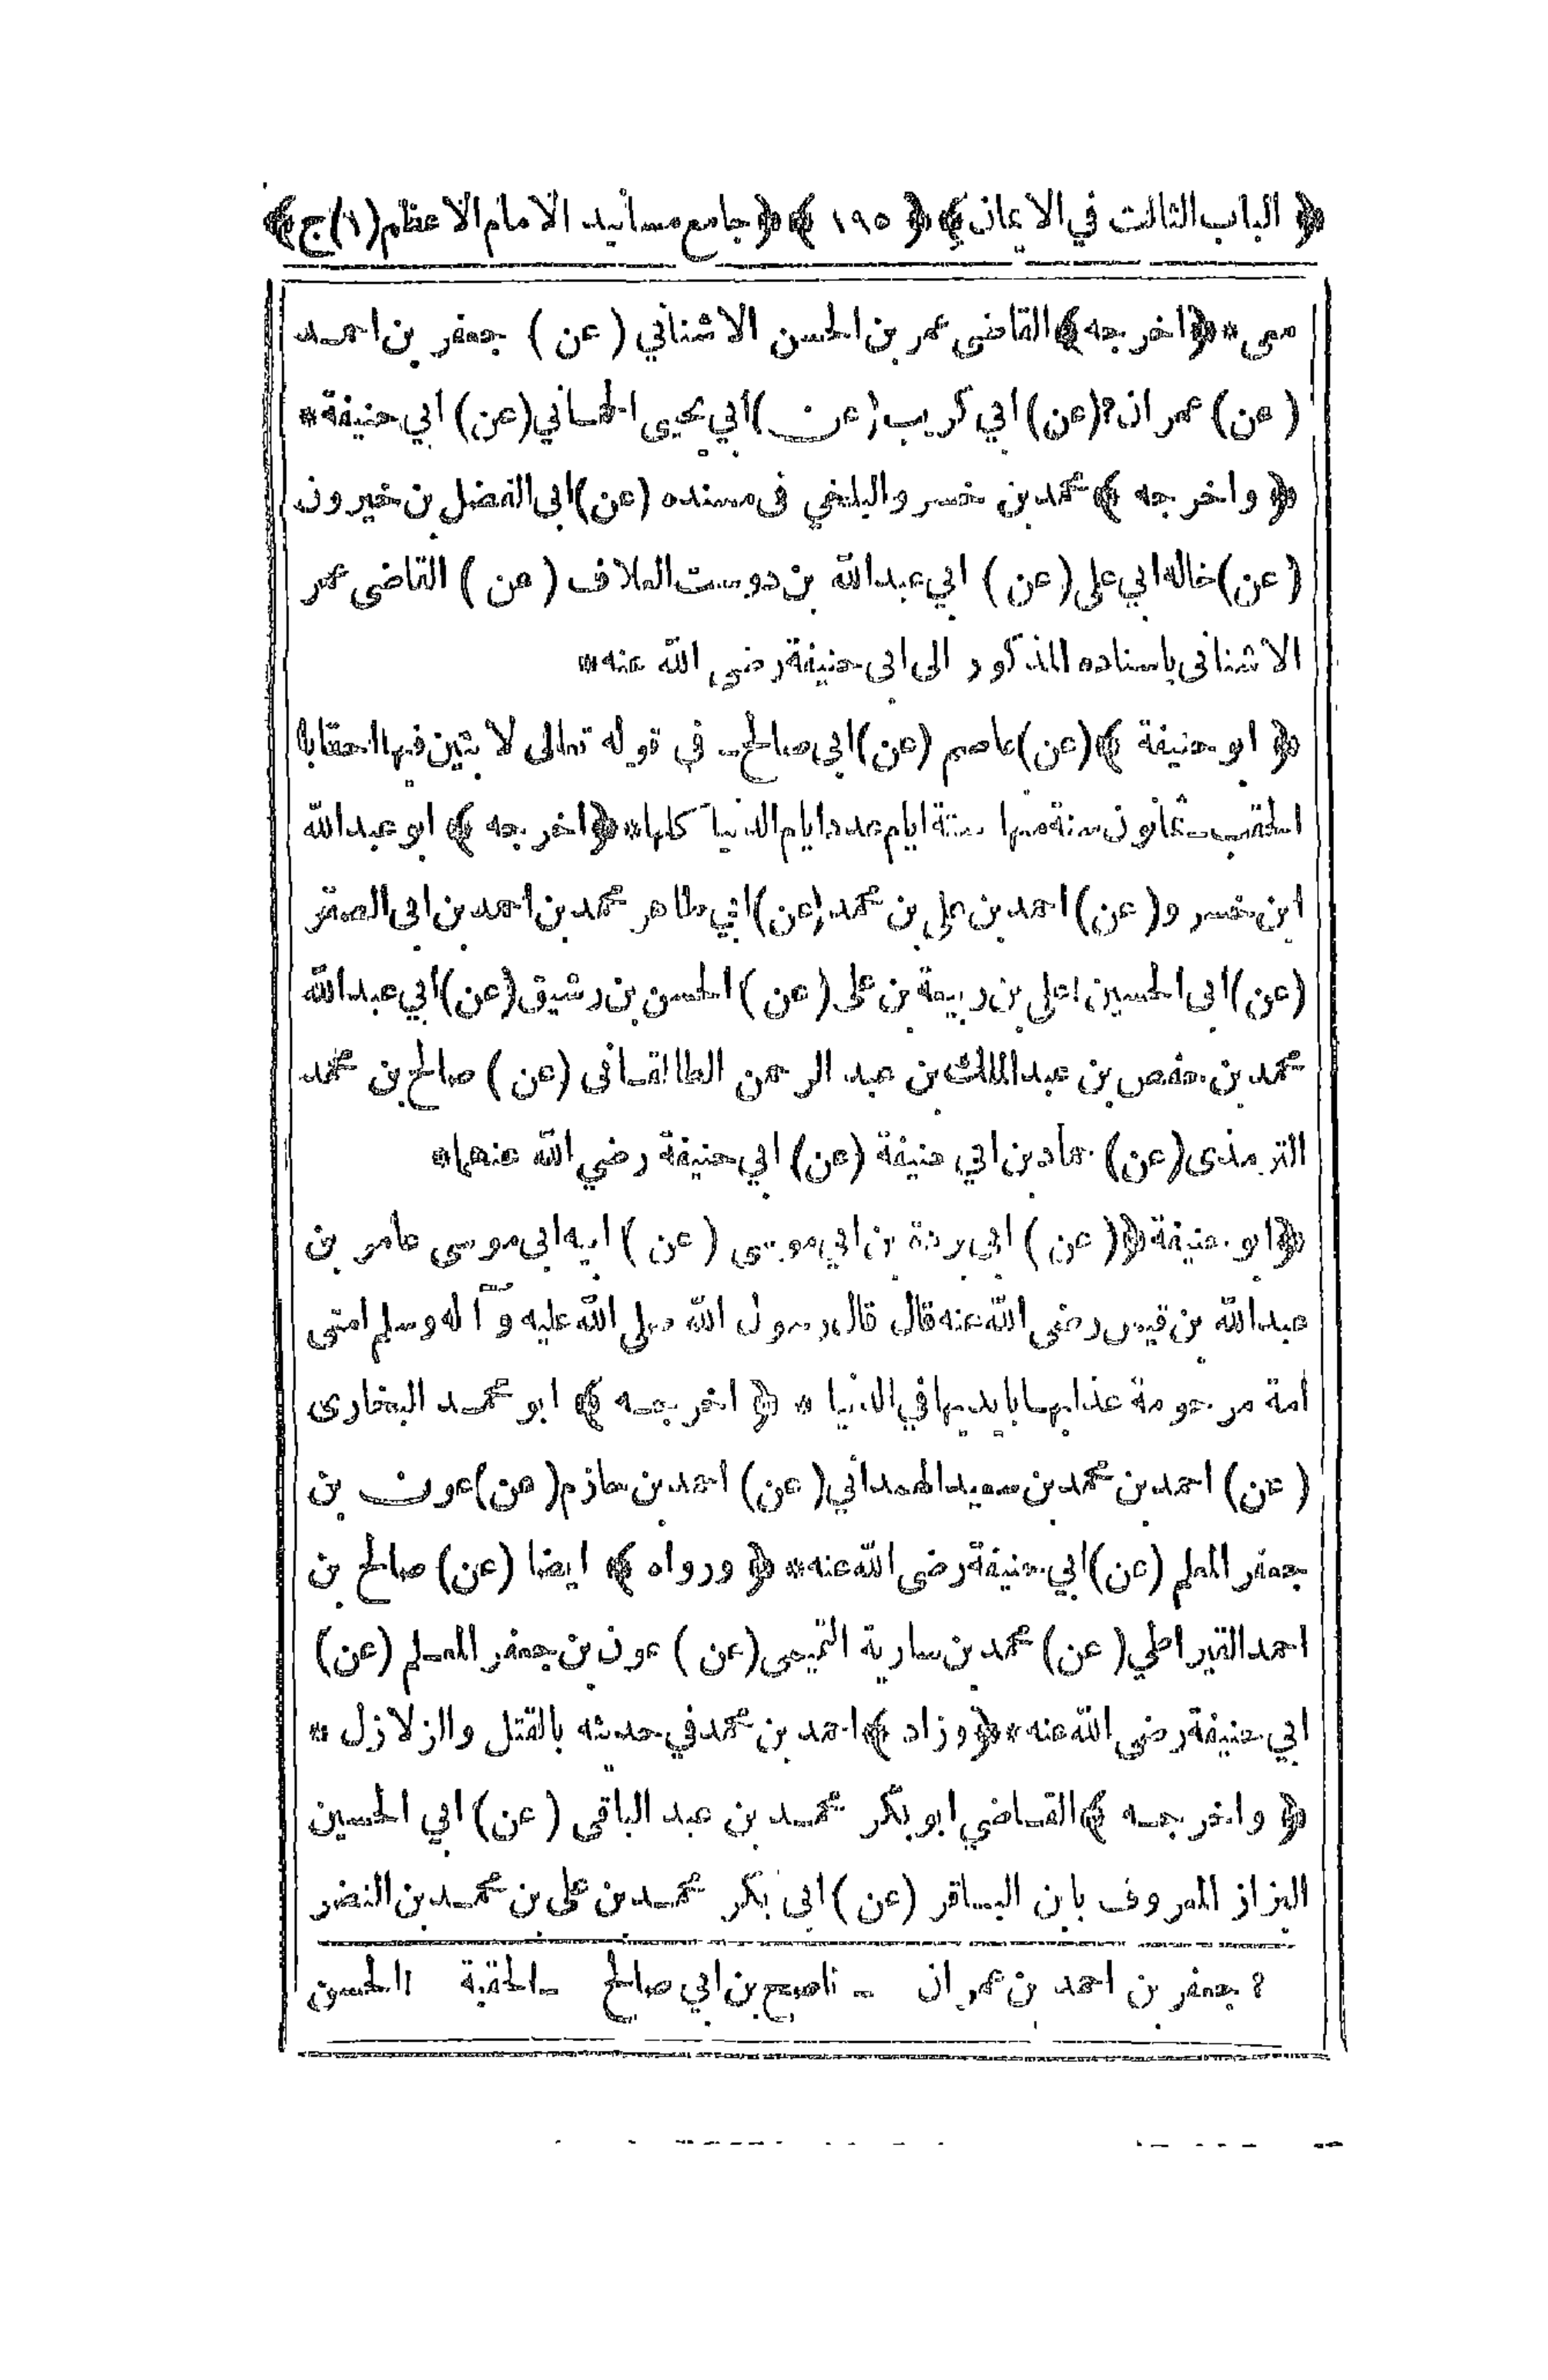 ﴿ الباب الثالث في الايمان ﴾ ﴿ ١٩٥ ﴾ ﴿ جامع مسانيد الامام الاعظم (١) ج ﴾
معى * ﴿ اخرجه ﴾ القاضى عمر بن الحسن الاشناني (عن) جعفر بن احمد
(عن) عمران ? (عن) ابي كريب (عن) ابي يحيى الحماني (عن) ابي حنيفة *
﴿ واخرجه ﴾ محمد بن خسرو البلخي فى مسنده (عن) ابى الفضل بن خيرون
(عن) خاله ابي على (عن) ابي عبد الله بن دوست العلاف (عن) القاضى عمر
الاشنانى باسناده المذكور الى ابى حنيفة رضي الله عنه *
﴿ ابو حنيفة ﴾ (عن) عاصم (عن) ابى صالح ـ في قوله تعالى لا بثين فيها احقابا
الحقب ـ ثمانون سنة منها ستة ايام عدد ايام الدنيا كلها * ﴿ اخرجه ﴾ ابو عبد الله
ابن خسرو (عن) احمد بن علي بن محمد (عن) ابي طاهر محمد بن احمد بن ابى الصقر
(عن) ابى الحسين ا على بن ربيعة بن على (عن) الحسن بن رشيق (عن) ابي عبد الله
محمد بن حفص بن عبد الملك بن عبد الرحمن الطالقانى (عن) صالح بن محمد
الترمذى (عن) حماد بن ابي حنيفة (عن) ابي حنيفة رضي الله عنهما *
﴿ ابو حنيفة ﴾ (عن) ابى بردة بن ابي موسى (عن) ابيه ابى موسى عامر بن
عبد الله بن قيس رضى الله عنه قال قال رسول الله صلى الله عليه وآله وسلم امتى
امة مرحومة عذابها بايديها في الدنيا * ﴿ اخرجه ﴾ ابو محمد البخارى
(عن) احمد بن محمد بن سعيد الهمداني (عن) احمد بن حازم (عن) عون بن
جعفر المعلم (عن) ابي حنيفة رضى الله عنه * ﴿ ورواه ﴾ ايضا (عن) صالح بن
احمد القيراطي (عن) محمد بن سارية التميمى (عن) عون بن جعفر المعلم (عن)
ابي حنيفة رضي الله عنه * ﴿ وزاد ﴾ احمد بن محمد في حديثه بالقتل والزلازل *
﴿ واخرجه ﴾ القاضي ابو بكر محمد بن عبد الباقى (عن) ابي الحسين
البزاز المعروف بابن الباقر (عن) ابى بكر محمد بن على بن محمد بن النضر
? جعفر بن احمد بن عمران ـ ناصح بن ابي صالح ـ الحقبة ا الحسن